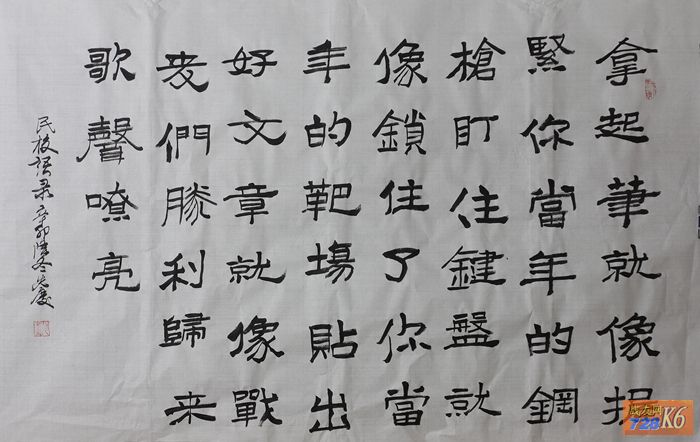 拿起筆就像
緊你當年的鋼
槍盯住鍵盤就
像鎖住了你當
年的靶場貼出
好文章就像戰
友們勝利歸來
歌聲嘹亮
民校语录辛卯隆冬
战友网
728 K6